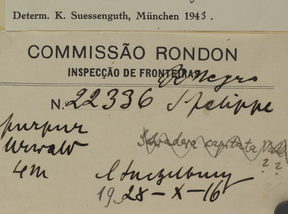 Determ. K. Suessenguth, München 1943.
COMMISSÃO RONDON
INSPECÇÃO DE FRONTEIRAS
R Negro
N. 22336 S Felippe
purpur
Urwald
4m
capitata
? ?
Luetzelburg
1928-X-16